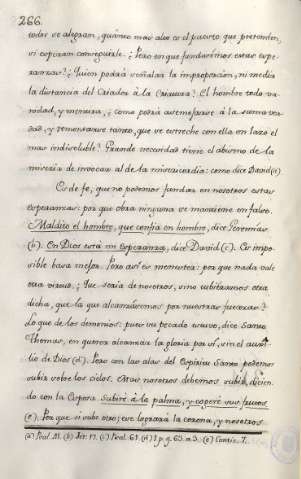 266.
todos se alegran, quánto mas alto es el puerto que pretenden,
si esperan conseguirle. ¿Pero en que fundarémos estas espe-
ranzas? ¿Quien podrá señalar la improporcion, ni medir
la distancia del Criador à la Criatura? El hombre todo va-
nidad, y mentira, ¿como podrá asemejarse à la suma ver-
dad, y remontarse tanto, que se estreche con ella en lazo el
mas indisoluble? Grande necesidad tiene el abismo de la
miseria de invocar al de la misericordia: como dice David (a)
Es de fe, que no podemos fundar en nosotros estas
esperanzas: por que obra ninguna se mantiene en falso.
Maldito el hombre, que confia en hombre, dice Jeremias
(b). En Dios está mi esperanza, dice David (c). Es impo-
sible basa mejor. Pero asi es menester: por que nada vale
otra virtud. ¿Que sería de nosotros, si no tubieramos otra
dicha, que la que alcanzásemos por nuestras fuerzas?
Lo que de los demonios: pues su pecado estuvo, dice Santo
Thomas, en querer alcanzar la gloria por sí, sin el auxi-
lio de Dios (d). Pero con las alas del Espiritu Santo podemos
subir sobre los cielos. Mas nosotros debemos subir, dicien-
do con la Esposa Subiré à la palma, y cogeré sus frutos
(e). Por que si sube otro; ese logrará la corona, y nosotros
(a) Psal. 41. (b) Jer. 17. (c) Psal. 61. (d) 1. p. q. 63. a. 3. (e) Cantic. 7.